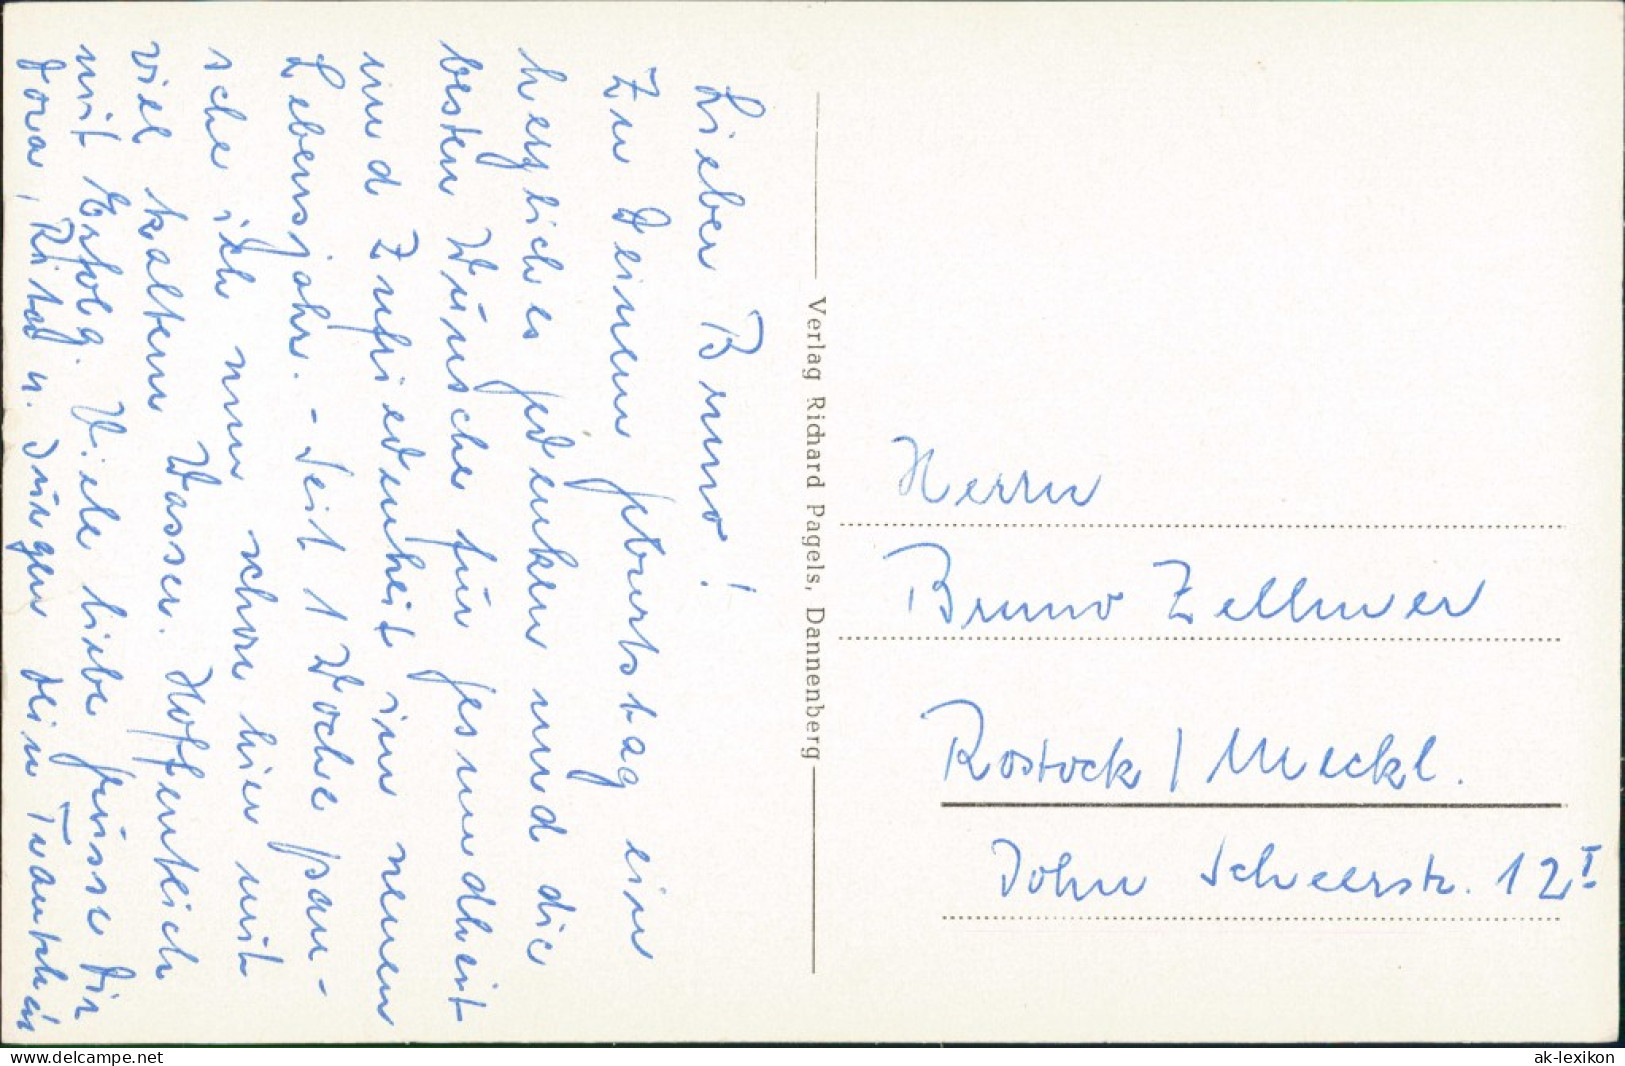 Lieber Bruno!
Zu Deinem Geburtstag ein
herzliches Gedenken und die
besten Wünsche für Gesundheit
und Zufriedenheit im neuen
Lebensjahr. - Seit 1 Woche pan-
sche ich nun schon hier mit
viel kaltem Wasser. Hoffentlich
mit Erfolg. Viele liebe Grüsse Dir
Dora, u. Jürgen Dein
Verlag Richard Pagels, Dannenberg
Herrn
Bruno Zellmer
Rostock / Meckl.
John Scheerstr. 12 I
www.delcampe.net
ak-lexikon